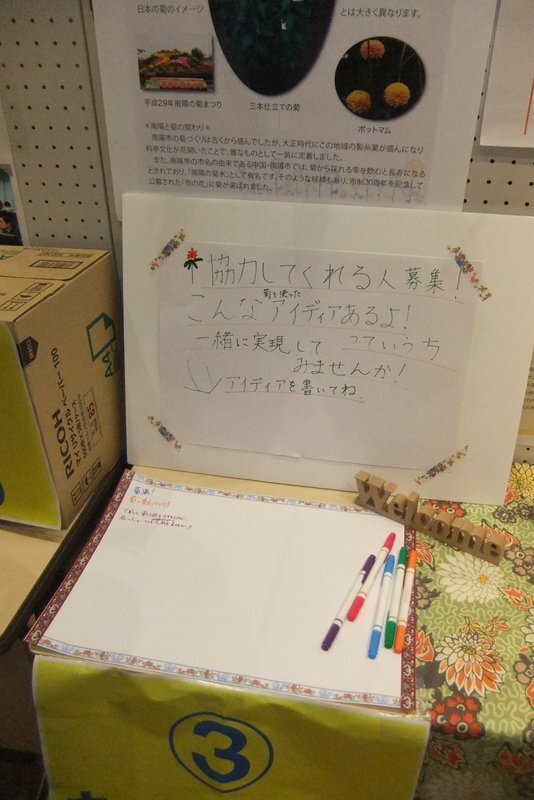 日本の菊のイメージ
とは大きく異なります。
平成29年南陽の菊まつり
三本仕立ての菊
ポットマム
＊南陽と菊の関わり＊
南陽市の菊づくりは古くから盛んでしたが、大正時代にこの地域の製糸業が盛んになり
料亭文化が花開いたことで、雅なものとして一気に定着しました。
また、南陽市の市名の由来である中国・南陽市では、菊から採れる雫を飲むと長寿になる
とされており、「南陽の菊水」として有名です。そのような経緯もあり、市制20周年を記念して
公募された「市の花」に菊が選ばれました。
協力してくれる人募集!
菊を使った
こんなアイディアあるよ!
一緒に実現して
みませんか!
っていうち
アイディアを書いてね
RICOH
マイリサイクルペーパー100
A4
Welcome
菊湯!
3